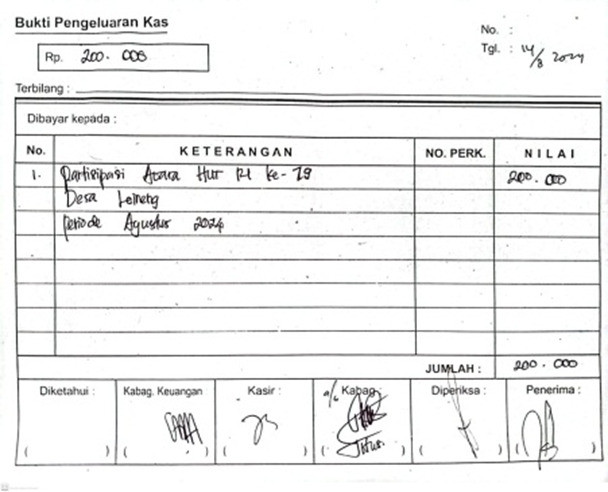 Bukti Pengeluaran Kas
No. :
Rp. 200.000
Tgl. : 14/8 2024
Terbilang :
Dibayar kepada :
No. KETERANGAN NO. PERK. NILAI
1. Partisipasi Acara Hut RI ke-79 200.000
Desa
Periode Agustus 2024
JUMLAH : 200.000
Diketahui : Kabag. Keuangan Kasir : Kabag : Diperiksa : Penerima :
( ) ( ) ( ) ( ) ( ) ( )